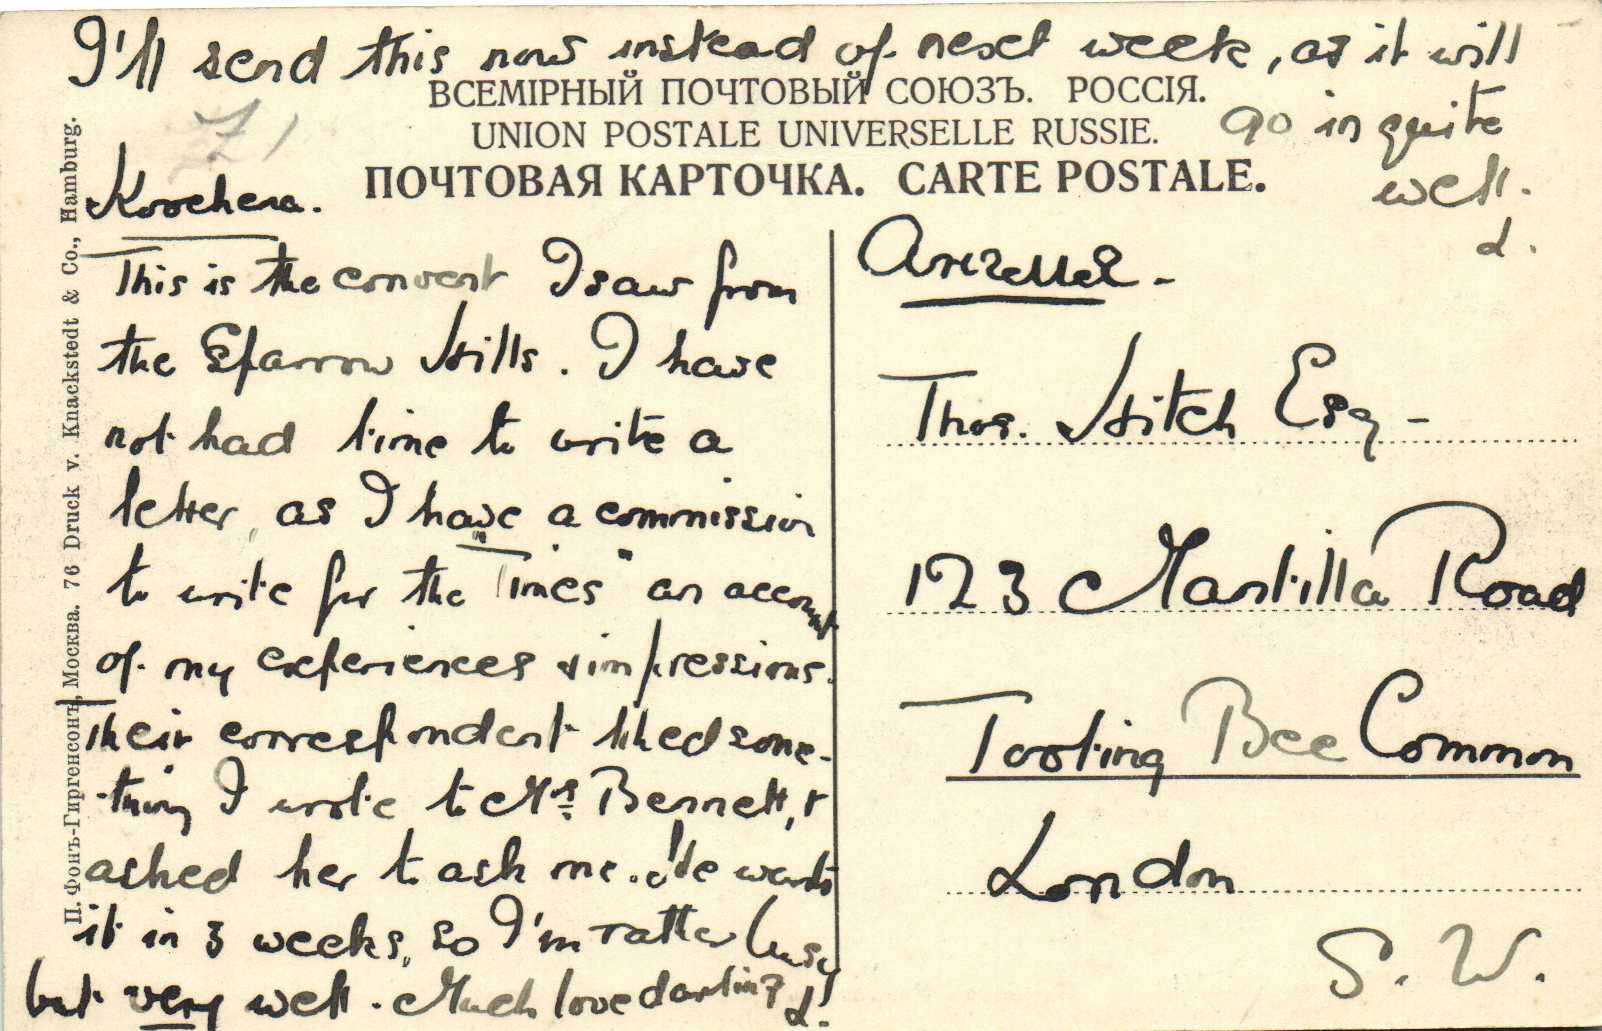 I'll send this now instead of next week, as it will
go in quite
well.
L.
ВСЕМІРНЫЙ ПОЧТОВЫЙ СОЮЗЪ. РОССІЯ.
UNION POSTALE UNIVERSELLE RUSSIE.
ПОЧТОВАЯ КАРТОЧКА. CARTE POSTALE.
П. Фонъ-Гиргенсонъ, Москва. 76 Druck v. Knackstedt & Co., Hamburg.
This is the convent I saw from
the Sparrow Hills. I have
not had time to write a
letter, as I have a commission
to write for the "Times" an account
of my experiences & impressions.
Their correspondent liked some-
thing I wrote to Mrs Bennett, &
asked her to ask me. He wants
it in 3 weeks, so I'm rather busy
but very well. Much love darling
L.
Thos. Hitch Esq -
123 Mantilla Road
Tooting Bec Common
London
S. W.